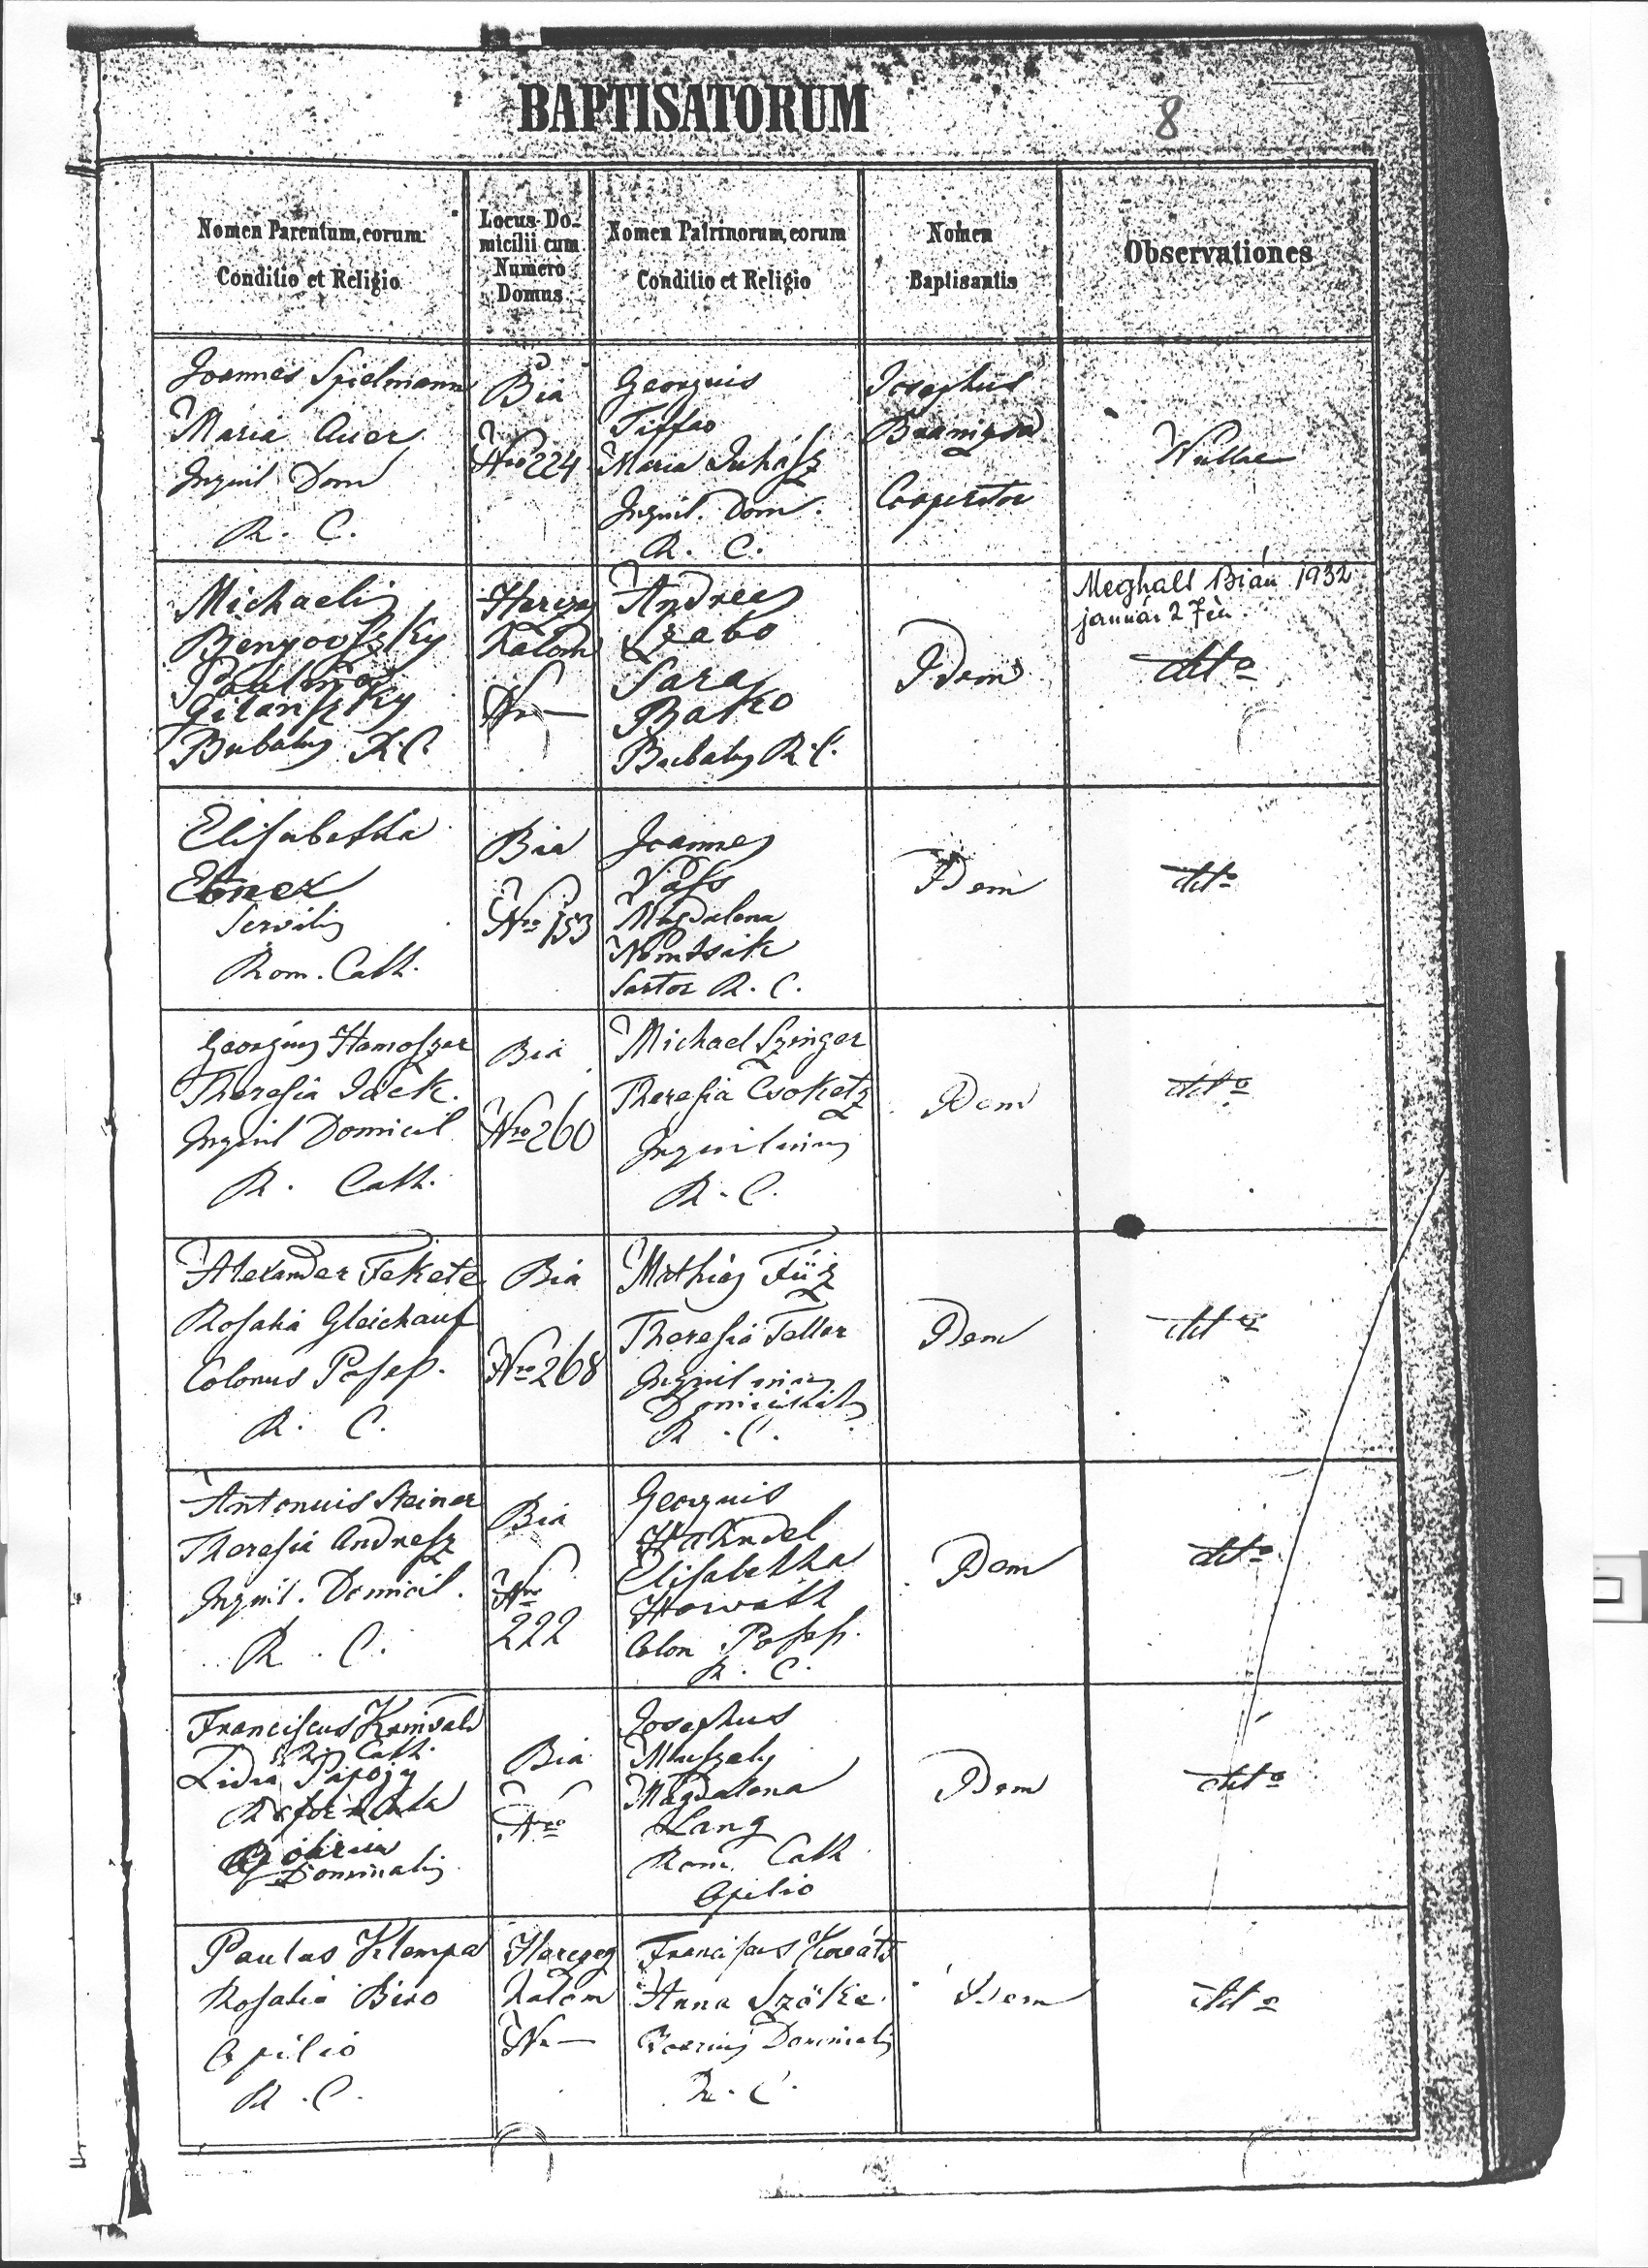 BAPTISATORUM
8
Nomen Parentum, eorum
Conditio et Religio
Locus Do-
micilii cum
Numero
Domus
Nomen Patrinorum, eorum
Conditio et Religio
Nomen
Baptisantis
Observationes
Joannes Spielmann
Maria Auer
Inquil Dom
R. C.
Bia
Nro 224
Georgius
Maria Juhász
Inquil. Dom.
R. C.
Josephus
Cooperator
Nullae
Michaelis
Benyovszky
Paulina
Gilanszky
Bubalus R. C.
Herczeg
halom
Nro —
Andreas
Szabo
Sara
Bako
Bubalus R. C.
Idem
Meghalt Bián 1932
január 2 fén.
detto
Elisabetha
Ebner
Servilis
Rom. Cath.
Bia
Nro 153
Joannes
Vass
Magdalena
Nemtsik
Sartor R. C.
Idem
detto
Georgius Hamoszer
Theresia Jäck.
Inquil Domicil
R. Cath.
Bia
Nro 260
Michael Szinger
Theresia Csoketz
Inquilinus
R. C.
Idem
detto
Alexander Fekete
Rosalia Gleichauf
Colonus Posess.
R. C.
Bia
Nro 268
Mathias Füz
Theresia Faller
Inquilinus
R. C.
Idem
detto
Antonius Steiner
Theresia Andresz
Inquil. Domicil.
R. C.
Bia
Nro
222
Georgius
Handel
Elisabetha
Horvath
Colon Posess.
R. C.
Idem
detto
Franciscus
R. Cath.
Lidia
Dominalis
Bia
Nro
Josephus
Magdalena
Lang
Rom. Cath
Opilio
Idem
detto
Paulus Klempa
Rosalia Biro
Opilio
R. C.
Herczeg
halom
Nr —
Franciscus Kováts
Anna Szöke
Dominalis
R. C.
Idem
detto